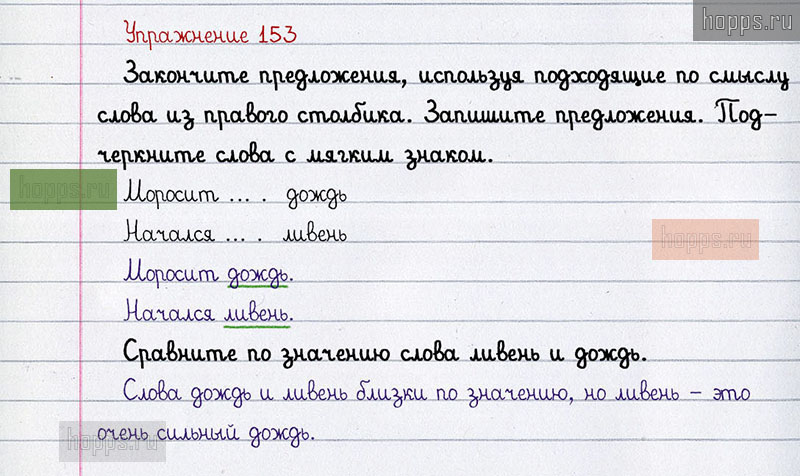 hopps.ru
Упражнение 153
Закончите предложения, используя подходящие по смыслу
слова из правого столбика. Запишите предложения. Под-
черкните слова с мягким знаком.
hopps.ru
Моросит ... . дождь
Начался ... . ливень
hopps.ru
Моросит дождь.
Начался ливень.
Сравните по значению слова ливень и дождь.
Слова дождь и ливень близки по значению, но ливень – это
очень сильный дождь.
hopps.ru